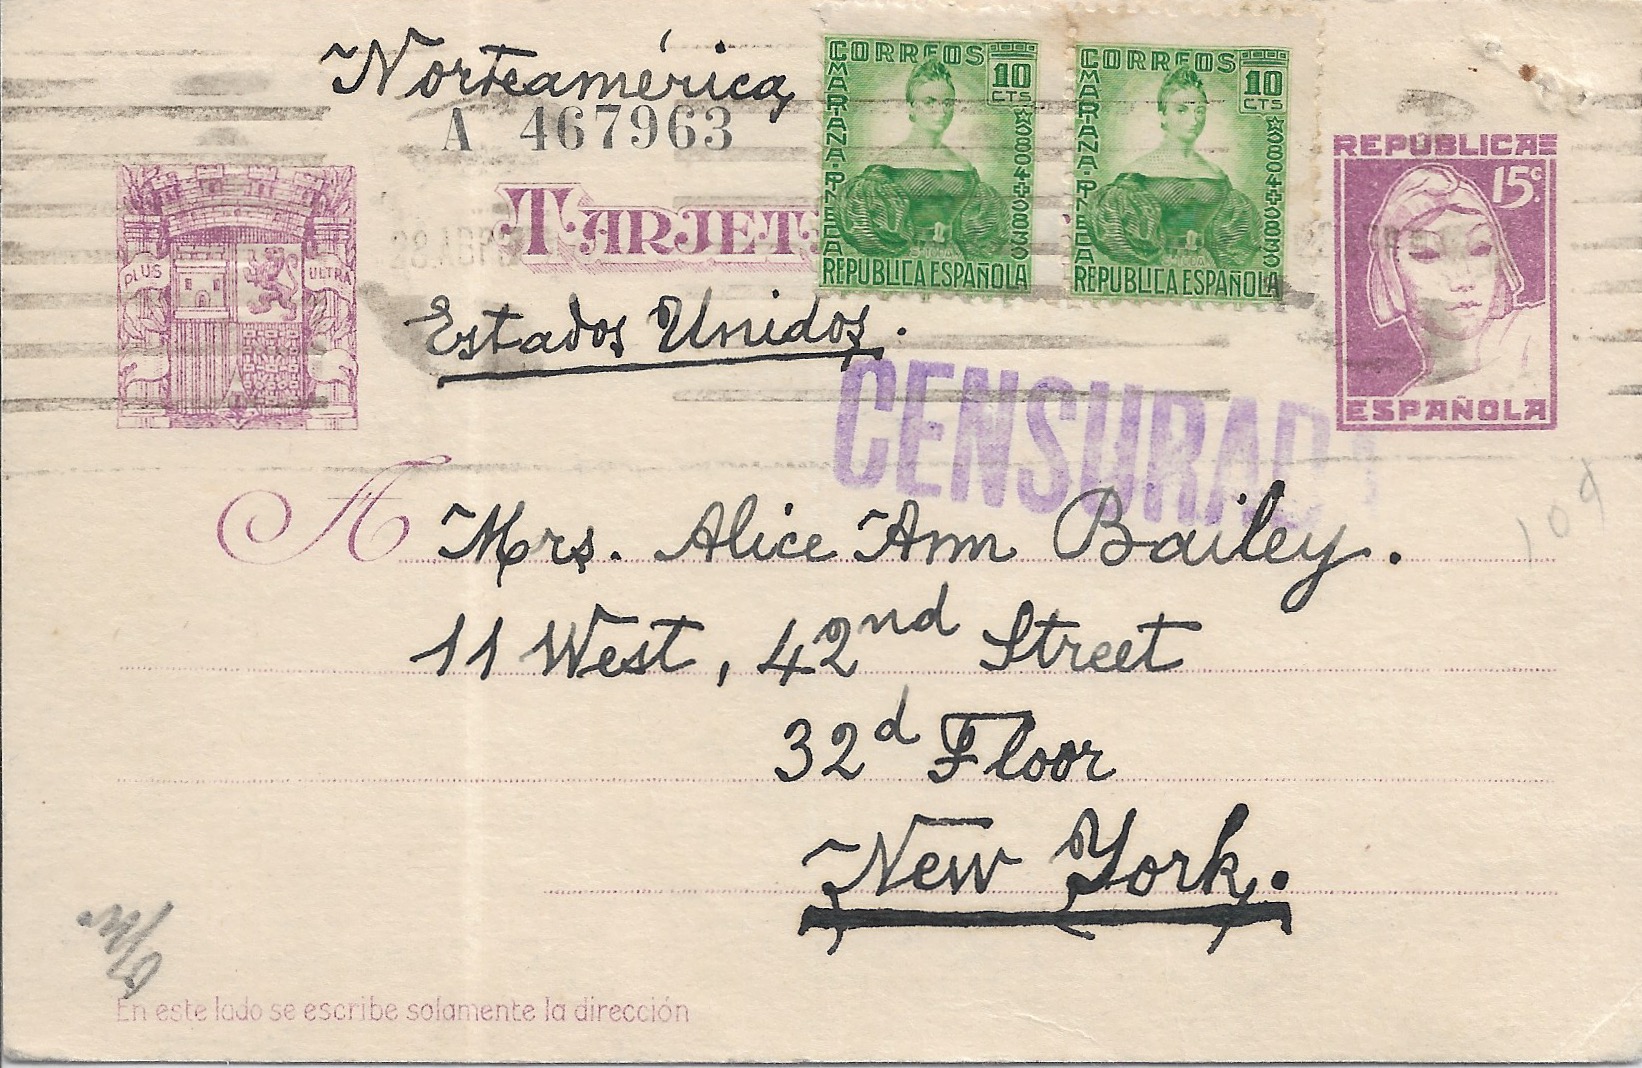 Norteamérica
A 467963
CORREOS
10 CTS
MARIANA PINEDA
1804 + 1833
REPUBLICA ESPAÑOLA
CORREOS
10 CTS
MARIANA PINEDA
1804 + 1833
REPUBLICA ESPAÑOLA
REPÚBLICA
15c.
ESPAÑOLA
PLUS ULTRA
TARJET
Estados Unidos.
CENSURAD
A Mrs. Alice Ann Bailey.
11 West, 42nd Street
32d Floor
New York.
109
En este lado se escribe solamente la dirección